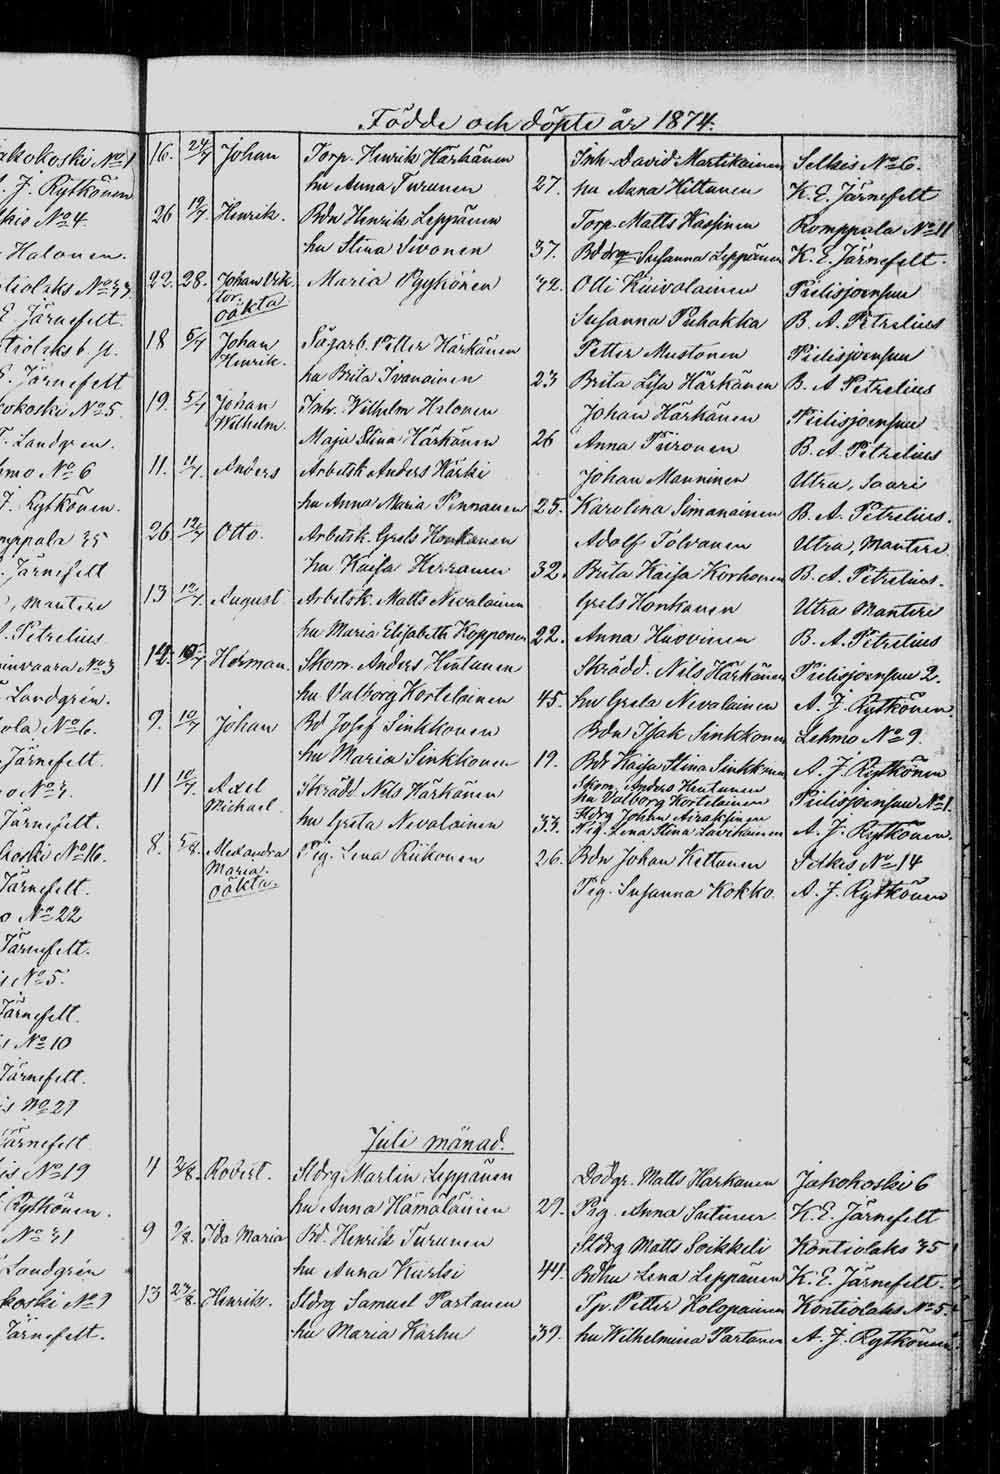 Födde och döpte år 1874.
akokoski No 1
A. J. Rytkönen
kis No 4.
Halonen.
tiolaks No 33
E Järnefelt.
tiolaks b. st.
E. Järnefelt
kokoski No 5.
T. Landgren.
hmo No 6
J. Rytkönen.
mppala 35
Järnefelt
, Mantere
A. Petrelius
ninvaara No 3
Landgrén.
ola No 6.
Järnefelt.
o No 7.
Järnefelt.
koski No 16.
Järnefelt.
o No 22
Järnefelt.
is No 5.
Järnefelt.
is No 10
Järnefelt.
is No 29
Järnefelt
is No 19
Rytkönen.
No 31
Landgrén
koski No 9
Järnefelt.
16. 24/7 Johan Torp. Henrik Härkönen Inh. David Martikainen Selkis No 6.
hu Anna Turunen 27. pu Anna Kittunen K. E. Järnefelt
26 19/7 Henrik. Bdn Henrik Leppänen Torp. Matts Kaspinen Romppala No 11
hu Stina Sivonen 37. Bddrg Susanna Leppänen K. E. Järnefelt.
22. 28. Johan Vik Maria Pyykönen 42. Olli Kuivalainen Pielisjoensuu
tor. oäkta Susanna Puhakka B. A. Petrelius
18 5/7 Johan Sågarb. Petter Härkönen Petter Mustonen Pielisjoensuu
Henrik. hu Brita Ivanainen 23 Brita Lisa Härkönen B. A Petrelius
19. 5/7 Johan Inh. Wilhelm Halonen Johan Härkönen Pielisjoensuu
Wilhelm. Maja Stina Härkönen 26 Anna Piironen B. A. Petrelius
11. 11/7 Anders Arbetsk Anders Härki Johan Manninen Utra, Saari
hu Anna Maria Pennanen 25. Karolina Simanainen B. A. Petrelius.
26. 12/7 Otto. Arbetsk. Grels Honkanen Adolf Tolvanen Utra, Mantere
hu Kaisa Herranen 32. Brita Kaisa Korhonen B. A. Petrelius.
13 12/7 August Arbetsk. Matts Nevalainen Grels Honkanen Utra Mantere
hu Maria Elisabeth Kopponen 22. Anna Huovinen B. A. Petrelius
14. 10/7 Herman. Skom. Anders Hintunen Skrädd. Nils Härkönen Pielisjoensuu 2.
hu Valborg Kortelainen 45. hu Greta Nevalainen A. J. Rytkönen.
9. 10/7 Johan Bd Josef Sinkkonen Bdn Isak Sinkkonen Lehmo No 9.
hu Maria Sinkkonen 19. Bdr Kaisa Stina Sinkkonen A. J. Rytkönen
11 10/7. Axel Skrädd Nils Härkönen Skom. Anders Hintunen
hu Valborg Kortelainen Pielisjoensuu No 1.
Michael hu Greta Nevalainen 33. Stdrg Johan Airaksinen
Pig. Lena Stina Lavikainen A. J. Rytkönen.
8. 5/8. Alexandra Pig. Lena Riikonen 26. Bdn Johan Kettunen Selkis No 14
Maria. oäkta. Pig. Susanna Kokko. A. J. Rytkönen
Juli månad.
4 2/8. Robert. Stdrg Martin Leppänen Ddgr. Matts Harkonen Jakokoski 6
hu Anna Hämäläinen 29. Pig. Anna Suturer K. E. Järnefelt
9 9/8. Ida Maria Bd. Henrik Turunen Stdrg Matts Soikkeli Kontiolaks 35
hu Anna Kurki 44. Bdhu Lena Leppänen K. E. Järnefelt.
13 23/8. Henrik. Stdrg Samuel Partanen Tp. Petter Holopainen Kontiolaks No 5.
hu Maria Karhu 39. hu Wilhelmina Partanen A. J. Rytkönen.